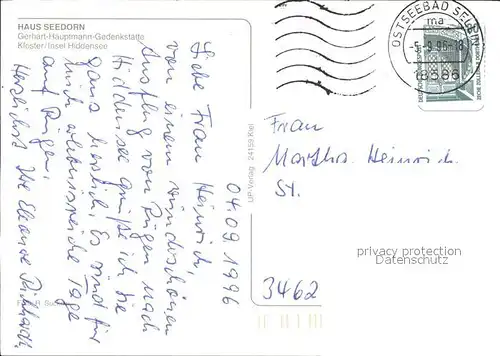 HAUS SEEDORN
Gerhart-Hauptmann-Gedenkstätte
Kloster/Insel Hiddensee
04.09.1996
Liebe Frau Heinrich,
von einem wunderschönen
Ausflug von Rügen nach
Hiddensee grüße ich Sie
ganz herzlich. Es sind für
mich erlebnisreiche Tage
auf Rügen.
Herzlichst Ihre
LIP-Verlag 24159 Kiel
OSTSEEBAD SELLIN
ma
-5.-9.96-18
18586
80
Frau
Martha Heinrich
St.
3462
privacy protection
watermark